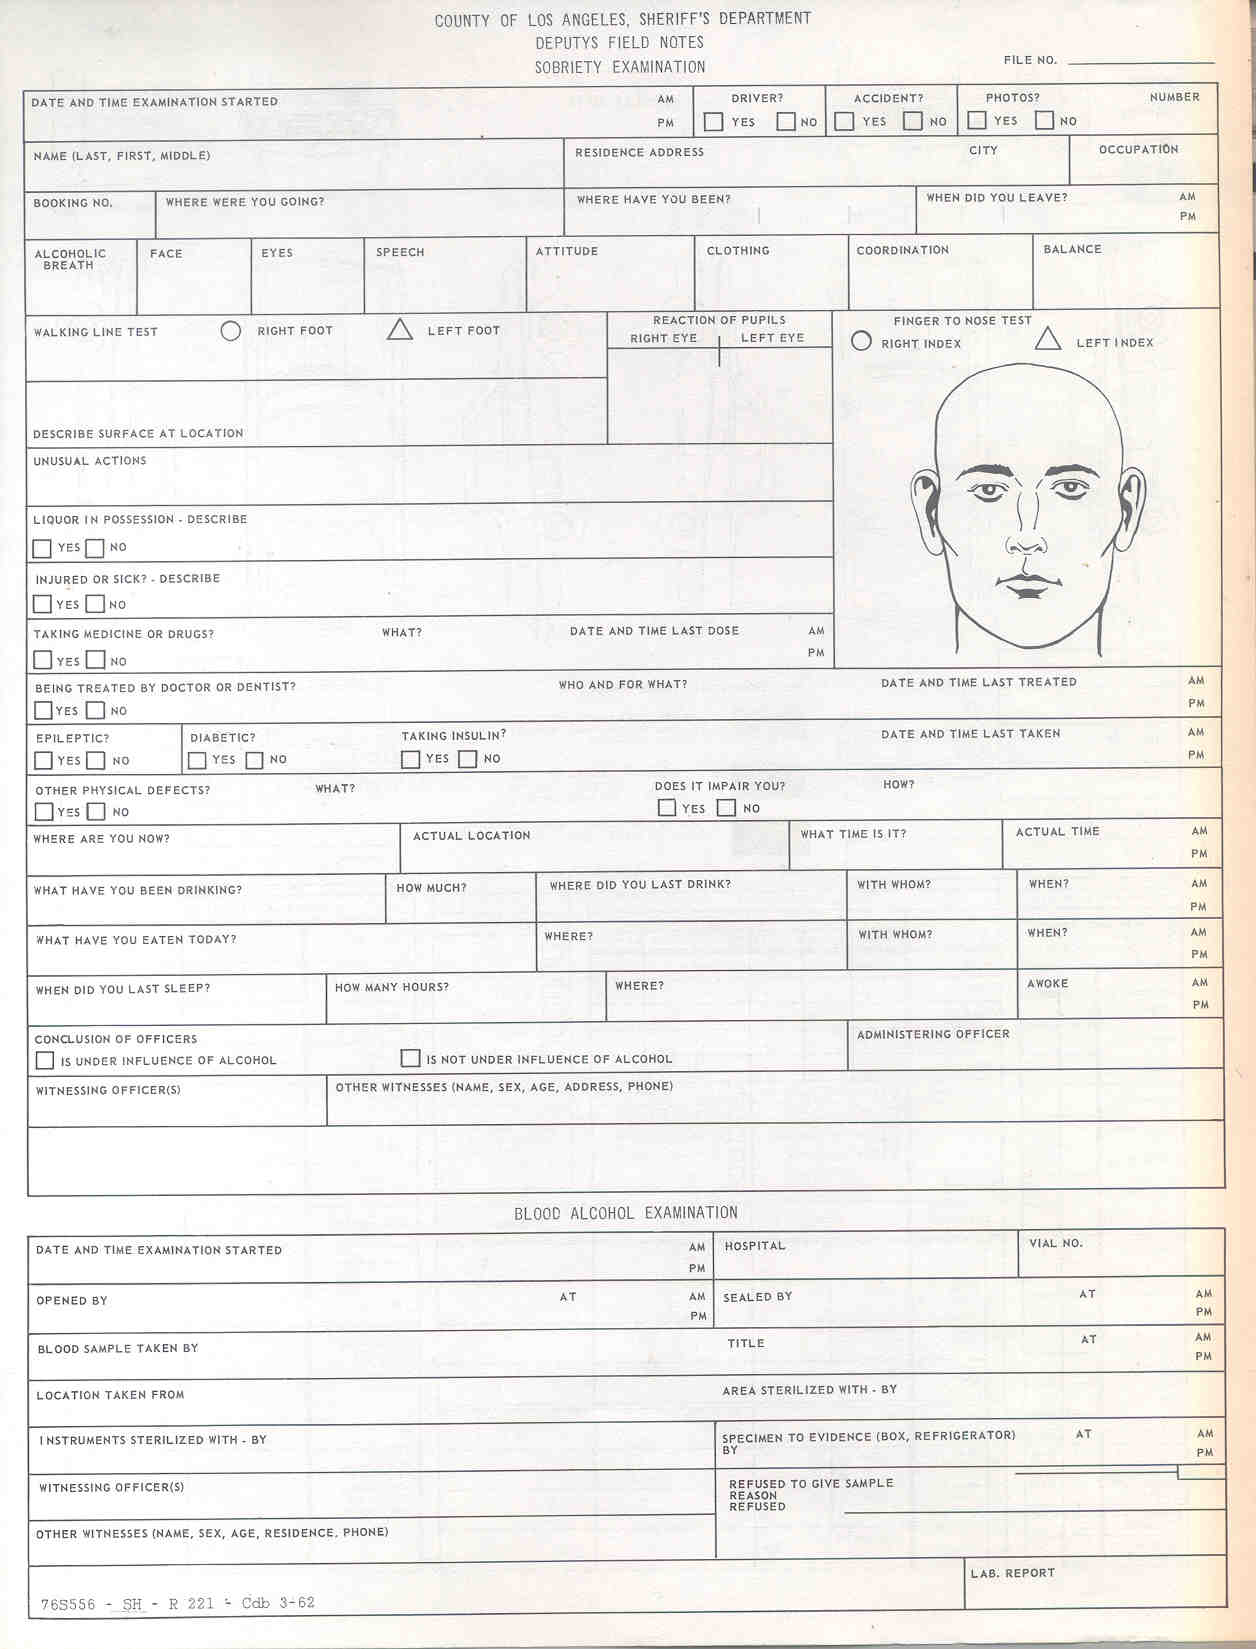 COUNTY OF LOS ANGELES, SHERIFF'S DEPARTMENT
DEPUTYS FIELD NOTES
SOBRIETY EXAMINATION
FILE NO.
DATE AND TIME EXAMINATION STARTED AM PM
DRIVER? YES NO
ACCIDENT? YES NO
PHOTOS? YES NO NUMBER
NAME (LAST, FIRST, MIDDLE)
RESIDENCE ADDRESS CITY
OCCUPATION
BOOKING NO.
WHERE WERE YOU GOING?
WHERE HAVE YOU BEEN?
WHEN DID YOU LEAVE? AM PM
ALCOHOLIC
BREATH
FACE
EYES
SPEECH
ATTITUDE
CLOTHING
COORDINATION
BALANCE
WALKING LINE TEST RIGHT FOOT LEFT FOOT
REACTION OF PUPILS
RIGHT EYE LEFT EYE
FINGER TO NOSE TEST
RIGHT INDEX LEFT INDEX
DESCRIBE SURFACE AT LOCATION
UNUSUAL ACTIONS
LIQUOR IN POSSESSION - DESCRIBE
YES NO
INJURED OR SICK? - DESCRIBE
YES NO
TAKING MEDICINE OR DRUGS? WHAT? DATE AND TIME LAST DOSE AM
YES NO PM
BEING TREATED BY DOCTOR OR DENTIST? WHO AND FOR WHAT? DATE AND TIME LAST TREATED AM
YES NO PM
EPILEPTIC? DIABETIC? TAKING INSULIN? DATE AND TIME LAST TAKEN AM
YES NO YES NO YES NO PM
OTHER PHYSICAL DEFECTS? WHAT? DOES IT IMPAIR YOU? HOW?
YES NO YES NO
WHERE ARE YOU NOW? ACTUAL LOCATION WHAT TIME IS IT? ACTUAL TIME AM
PM
WHAT HAVE YOU BEEN DRINKING? HOW MUCH? WHERE DID YOU LAST DRINK? WITH WHOM? WHEN? AM
PM
WHAT HAVE YOU EATEN TODAY? WHERE? WITH WHOM? WHEN? AM
PM
WHEN DID YOU LAST SLEEP? HOW MANY HOURS? WHERE? AWOKE AM
PM
CONCLUSION OF OFFICERS
IS UNDER INFLUENCE OF ALCOHOL IS NOT UNDER INFLUENCE OF ALCOHOL
ADMINISTERING OFFICER
WITNESSING OFFICER(S)
OTHER WITNESSES (NAME, SEX, AGE, ADDRESS, PHONE)
BLOOD ALCOHOL EXAMINATION
DATE AND TIME EXAMINATION STARTED AM PM
HOSPITAL
VIAL NO.
OPENED BY AT AM PM
SEALED BY AT AM PM
BLOOD SAMPLE TAKEN BY TITLE AT AM PM
LOCATION TAKEN FROM AREA STERILIZED WITH - BY
INSTRUMENTS STERILIZED WITH - BY
SPECIMEN TO EVIDENCE (BOX, REFRIGERATOR) AT AM
BY PM
WITNESSING OFFICER(S)
REFUSED TO GIVE SAMPLE
REASON
REFUSED
OTHER WITNESSES (NAME, SEX, AGE, RESIDENCE, PHONE)
LAB. REPORT
76S556 - SH - R 221 - Cdb 3-62